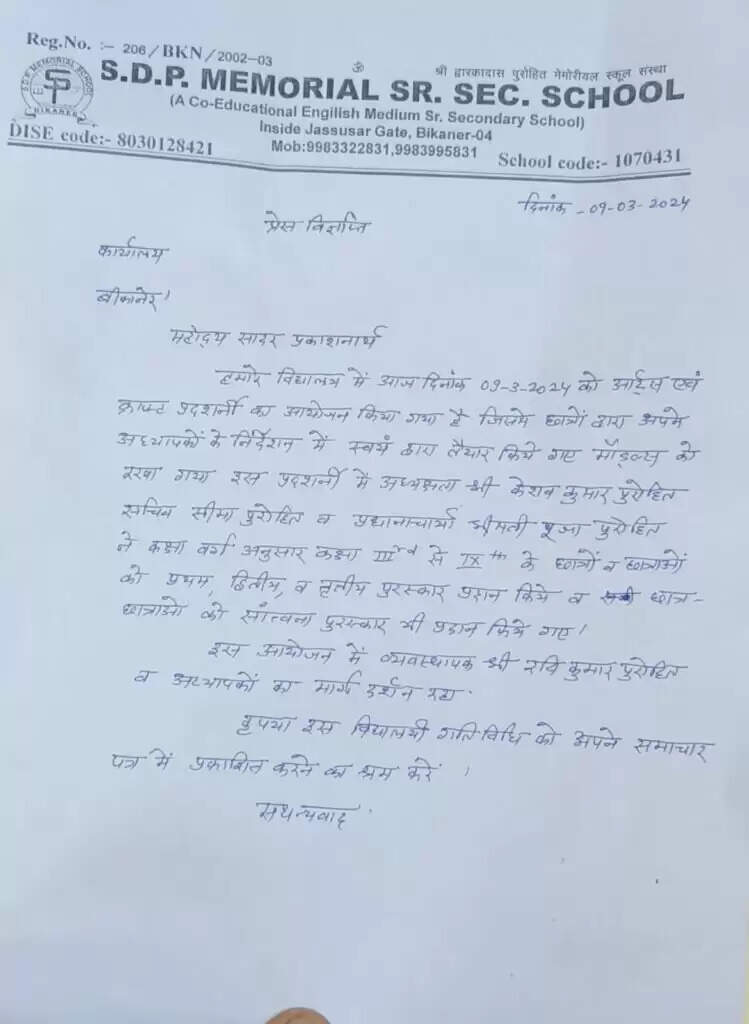 Reg.No. :- 206/BKN/2002-03
ॐ
श्री द्वारकादास पुरोहित मेमोरीयल स्कूल संस्था
S.D.P. MEMORIAL SR. SEC. SCHOOL
(A Co-Educational Engilish Medium Sr. Secondary School)
Inside Jassusar Gate, Bikaner-04
DISE code:- 8030128421
Mob:9983322831,9983995831
School code:- 1070431
S.D.P. MEMORIAL SCHOOL
BIKANER
दिनांक - 09-03-2024
प्रेस विज्ञप्ति
कार्यालय
बीकानेर।
महोदय सादर प्रकाशनार्थ
हमारे विद्यालय में आज दिनांक 09-3-2024 को आर्ट्स एवं
क्राफ्ट प्रदर्शनी का आयोजन किया गया है जिसमे छात्रों द्वारा अपने
अध्यापकों के निर्देशन में स्वयं द्वारा तैयार किये गए मॉडल्स को
रखा गया इस प्रदर्शनी में अध्यक्षता श्री केशव कुमार पुरोहित
सचिव सीमा पुरोहित व प्रधानाचार्या श्रीमती पूजा पुरोहित
ने कक्षा वर्ग अनुसार कक्षा IIIrd से IXth के छात्रों व छात्राओं
को प्रथम, द्वितीय, व तृतीय पुरस्कार प्रदान किये व सभी छात्र-
छात्राओ को सांत्वना पुरस्कार भी प्रदान किये गए।
इस आयोजन में व्यवस्थापक श्री रवि कुमार पुरोहित
व अध्यापकों का मार्ग दर्शन रहा
कृपया इस विद्यालयी गतिविधि को अपने समाचार
पत्र में प्रकाशित करने का श्रम करें ।
सधन्यवाद